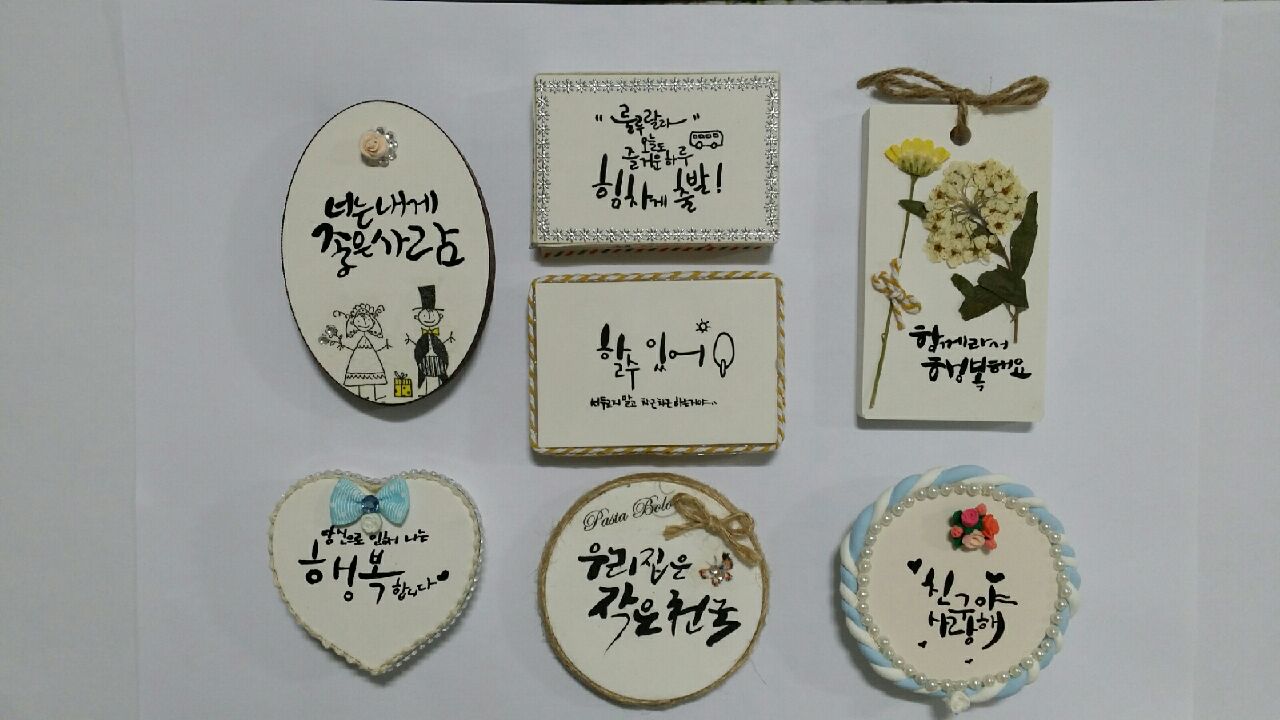 너는 내게
좋은 사람
"룰루랄라"
오늘도
즐거운 하루
힘차게 출발!
할 수 있어
서두르지 말고 차근차근 하는거야..
함께라서
행복해요
당신으로 인해 나는
행복합니다
Pasta Bolo
우리집은
작은 천국
친구야
사랑해